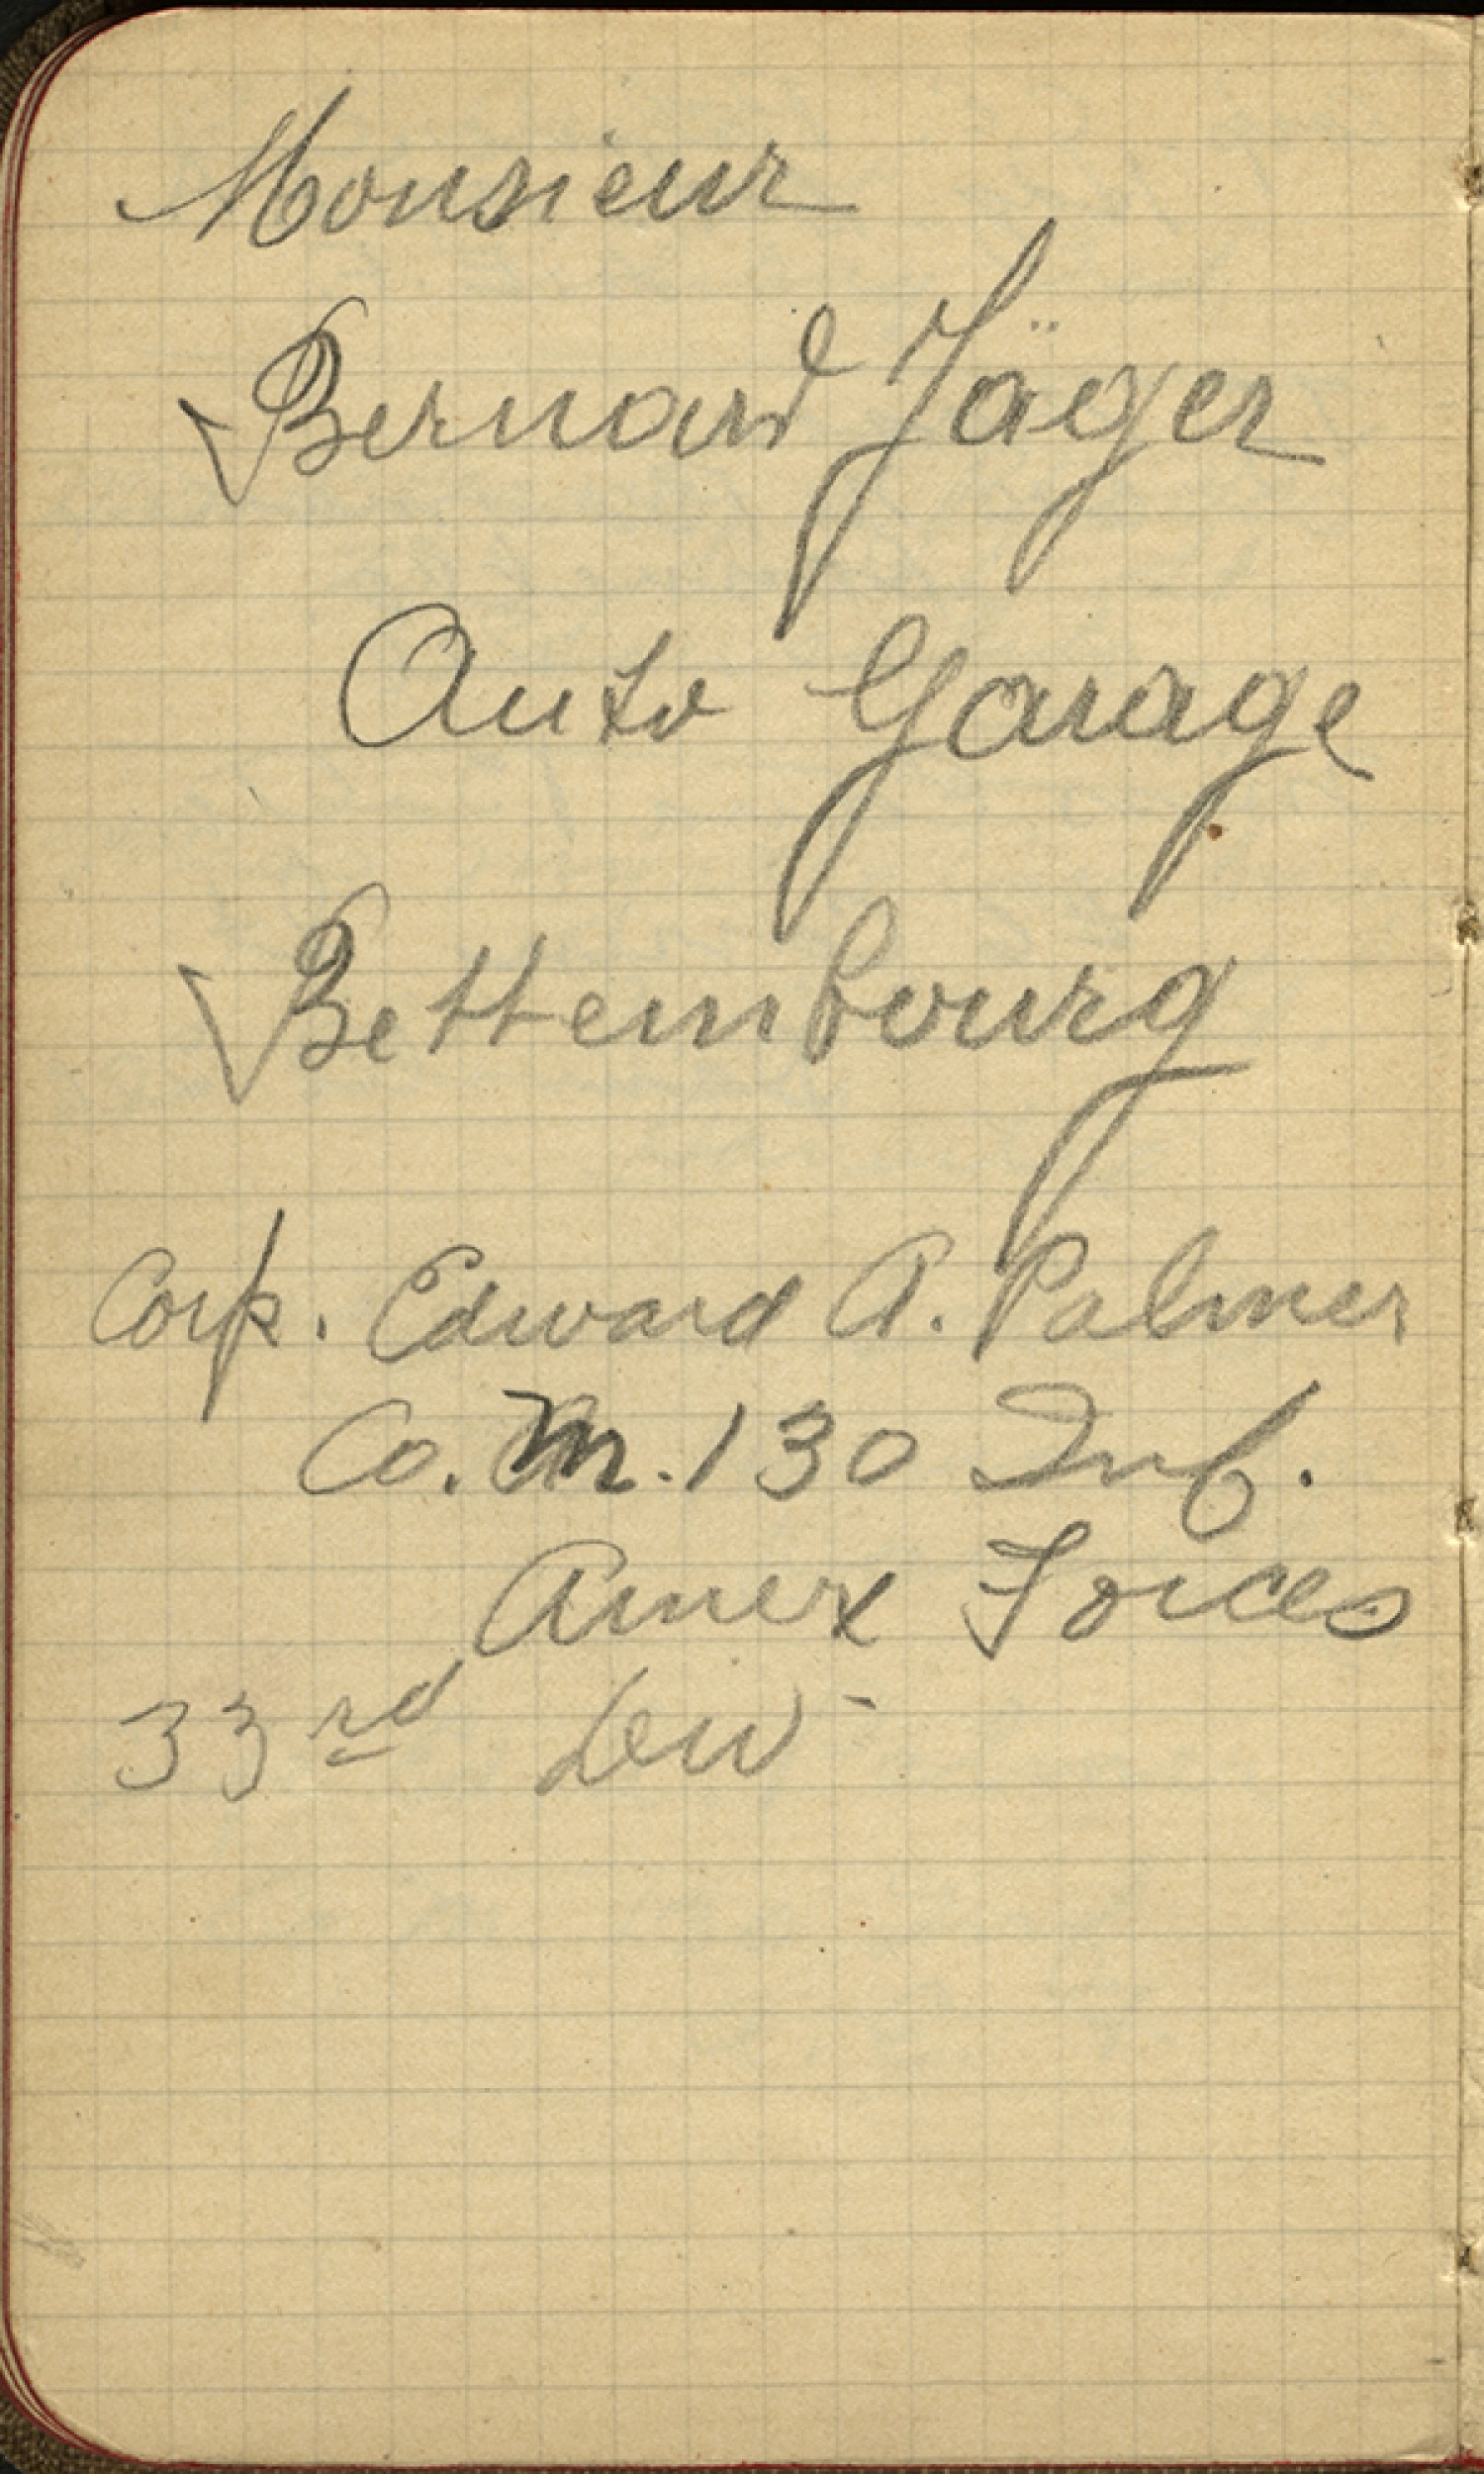 Monsieur
Bernard Jäger
Auto Garage
Bettembourg
Corp. Edward A. Palmer
Co. M. 130 Inf.
Amex Forces
33rd Div